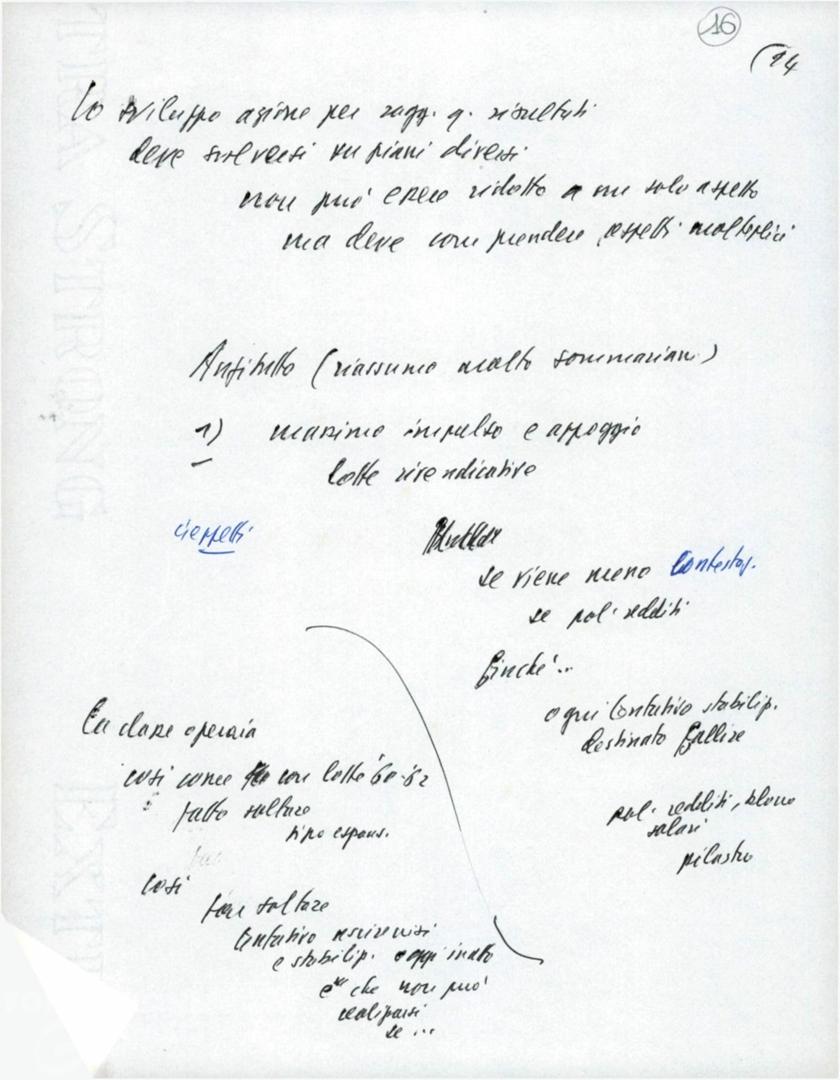 16
(14
Lo sviluppo azione per ragg. q. risultati
deve svolversi su piani diversi
non può essere ridotto a un solo aspetto
ma deve comprendere aspetti molteplici
Anzitutto (riassumo molto sommariam.)
1) massimo impulso e appoggio
lotte rivendicative
se viene meno contestaz.
se pol. redditi
finché...
ogni tentativo stabiliz.
destinato fallire
pol. redditi, blocco
salari
pilastro
La classe operaia
così come con lotte '60-'62
fatto saltare
tipo espans.
così
fare saltare
tentativo
e stabiliz. oggi in atto
e che non può
realizzarsi
se ...